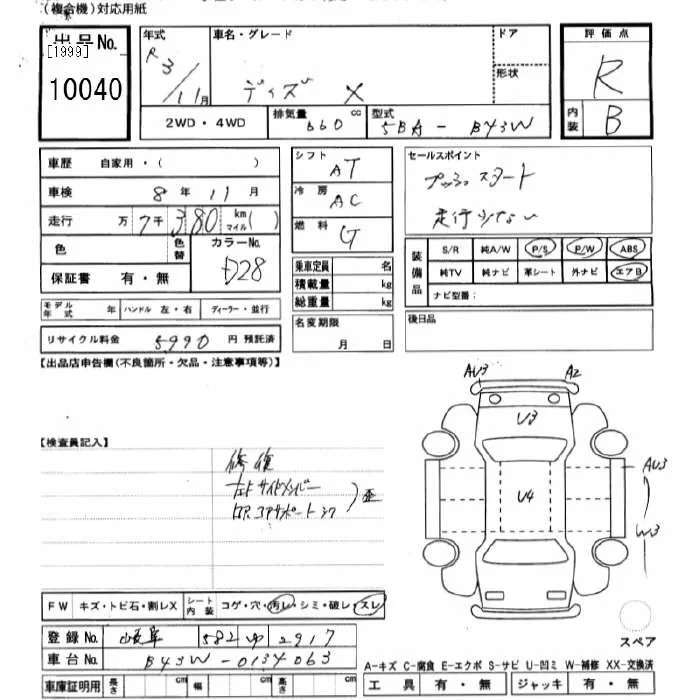 (複合機)対応用紙
出品No.
[1999]
10040
年式
R3/11月
車名・グレード
デイズ X
ドア
形状
評価点
R
内装 B
2WD・4WD
排気量 660 cc
型式 5BA-B43W
車歴 自家用・( )
車検 8年11月
走行 万7千380 km マイル( )
色
色替
カラーNo.
保証書 有・無
モデル年式 年
ハンドル 左・右
ディーラー・並行
リサイクル料金 5990 円 預託済
シフト AT
冷房 AC
燃料 G
乗車定員 名
積載量 kg
総重量 kg
名変期限
月 日
セールスポイント
プッシュスタート
走行少ない
装備品
S/R 純A/W P/S P/W ABS
純TV 純ナビ 革シート 外ナビ エアB
ナビ型番:
後日品
【出品店申告欄(不良箇所・欠品・注意事項等)】
【検査員記入】
修復
AU3
A2
U3
U4
AU3
W3
FW キズ・トビ石・割レX
シート内装 コゲ・穴・汚レ・シミ・破レ・スレ
登録No. 岐阜 582 ゆ 2917
車台No. B43W-0134063
車庫証明用 長さ cm 幅 cm 高さ cm
スペア
A-キズ C-腐食 E-エクボ S-サビ U-凹ミ W-補修 XX-交換済
工具 有・無 ジャッキ 有・無